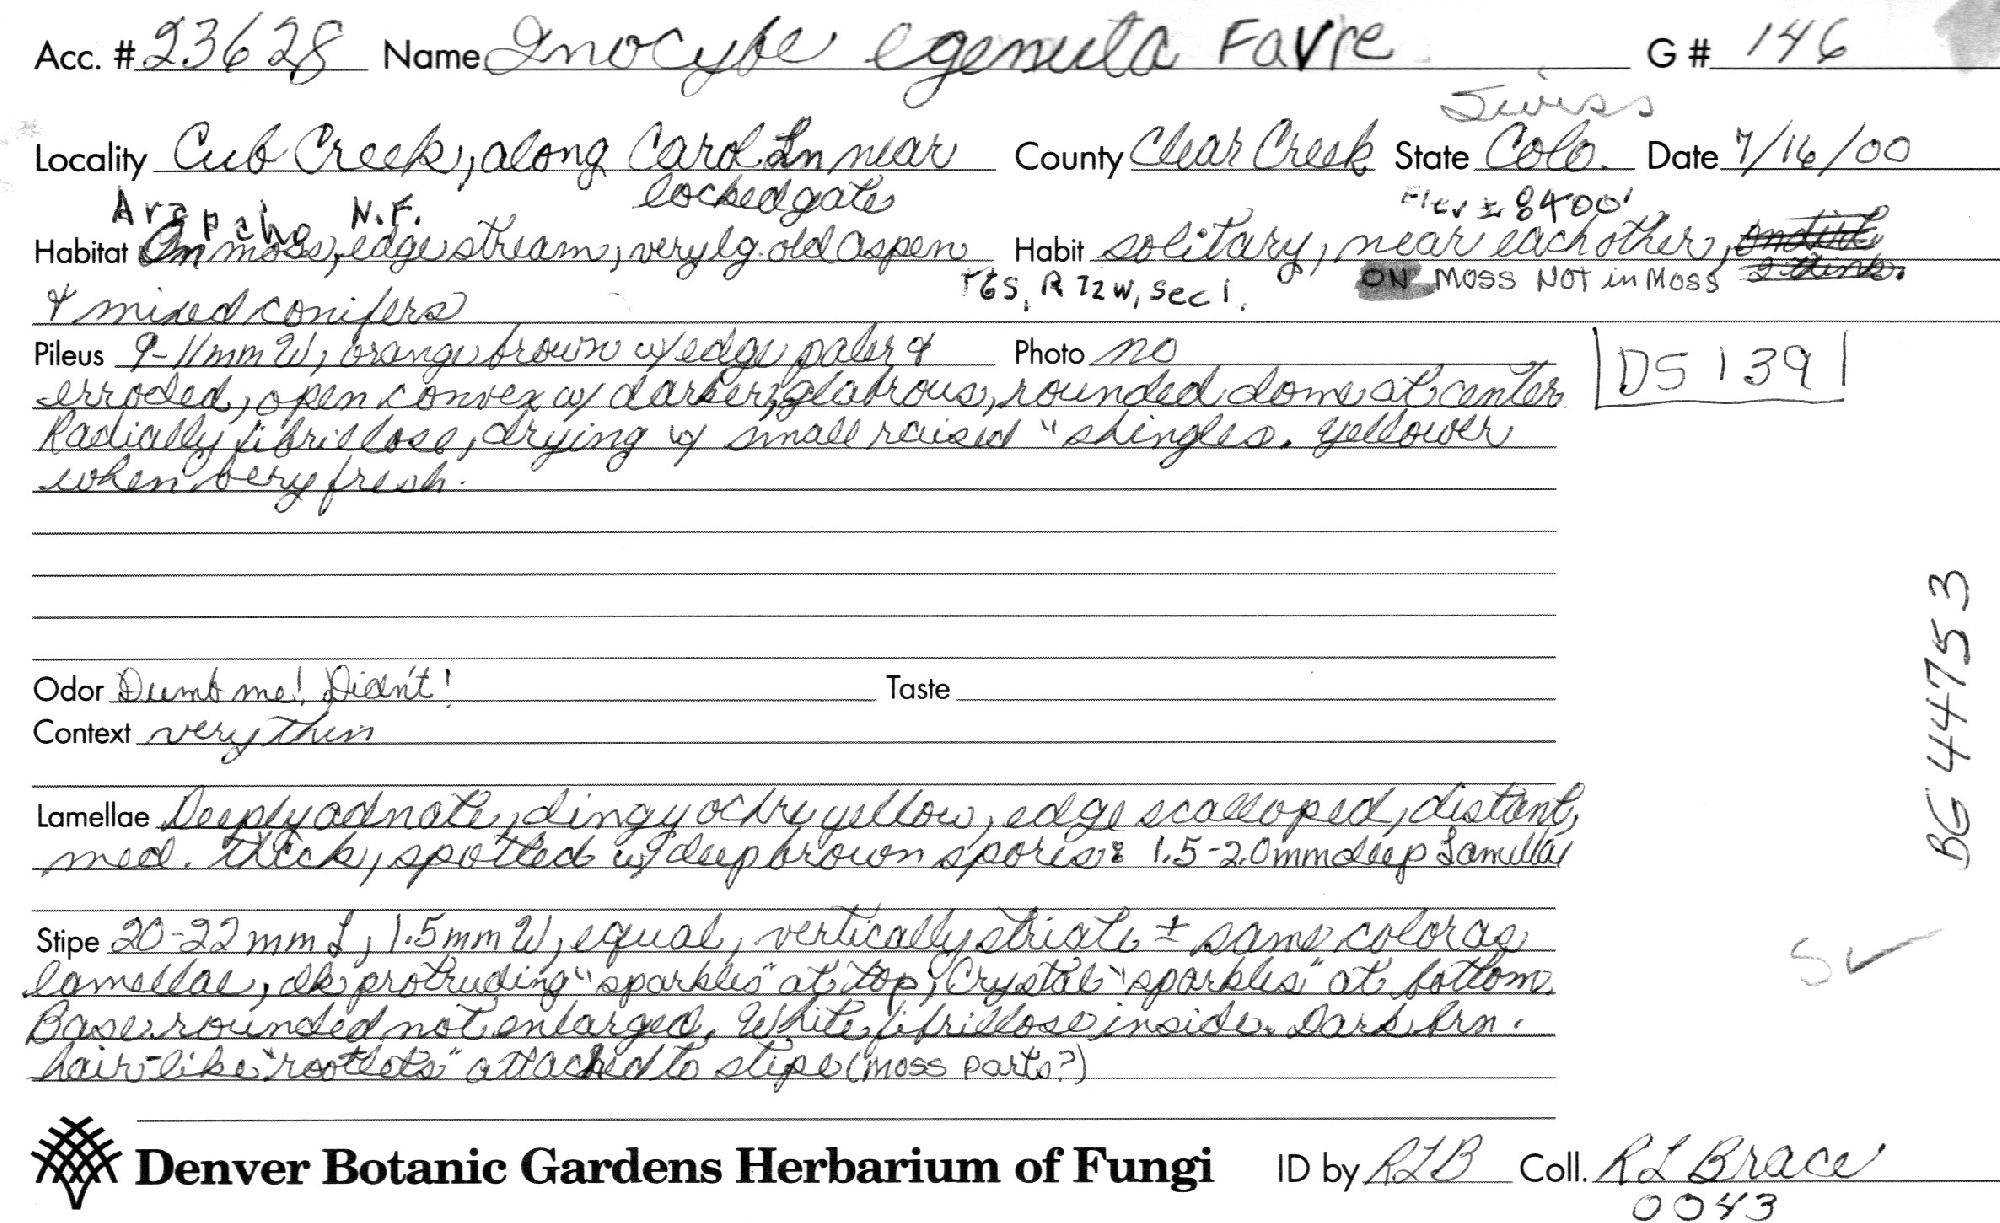 Acc. # 23628 Name Inocybe egenula Favre G # 146
Swiss
Locality Cub Creek, along Carol Ln near County Clear Creek State Colo. Date 7/16/00
locked gate
Arapaho N.F. Elev ± 8400'
Habitat On moss, edge stream, very lg. old aspen Habit solitary, near each other, on dirt
T6S, R72W, Sec 1. ON MOSS NOT in MOSS I think.
& mixed conifers
Pileus 9-11mm W, orange brown w/ edge paler & Photo no
erroded, open convex w/ darker, glabrous, rounded dome at center
Radially fibrillose, drying w/ small raised "shingles. Yellower
when very fresh.
DS 139
BG 44753
Odor Dumb me! Didn't! Taste
Context very thin
Lamellae Deeply adnate, dingy ochry yellow, edge scalloped, distant,
med. thick, spotted w/ deep brown spores: 1.5-2.0mm deep Lamellae
Stipe 20-22mm L, 1.5mm W, equal, vertically striate ± same color as
lamellae, dk protruding "sparkles" at top, Crystal "sparkles" at bottom.
Base rounded not enlarged. White fibrillose inside. Dark brn.
hair-like "rootlets" attached to stipe (moss parts?)
S ✓
Denver Botanic Gardens Herbarium of Fungi ID by RLB Coll. RL Brace
0043